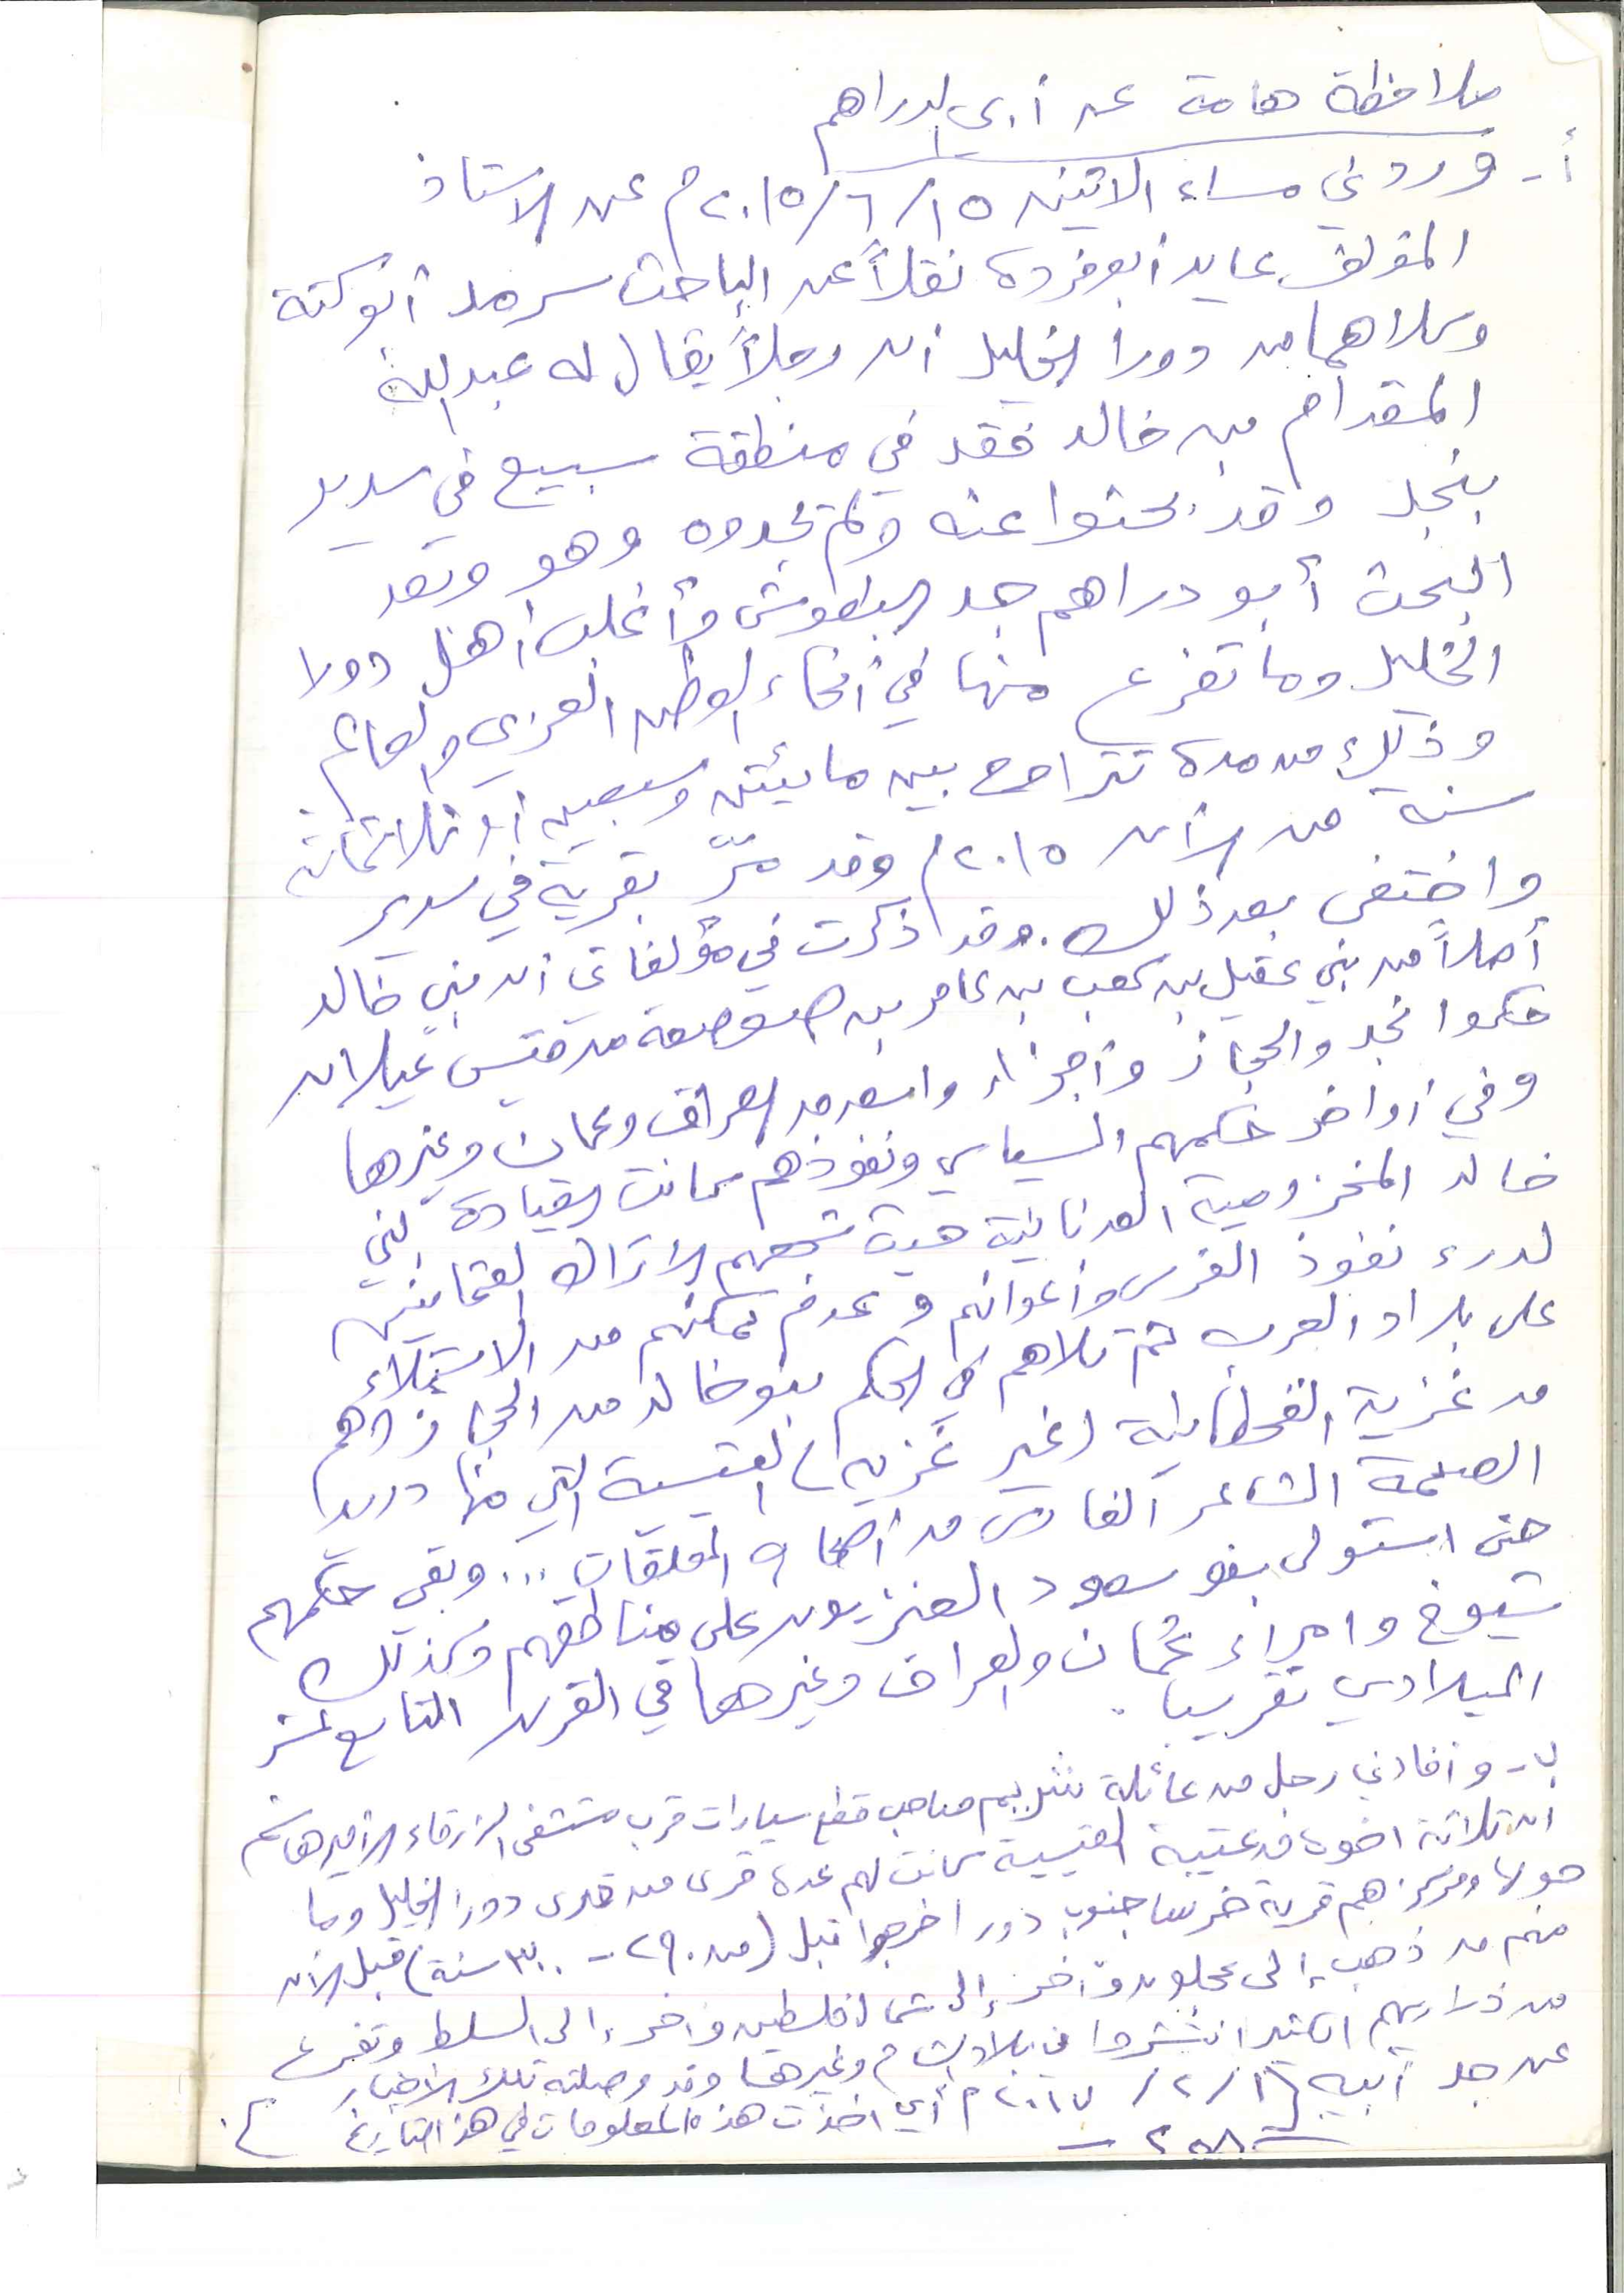 ملاحظة هامة عن أبي دراهم
أ- وردني مساء الاثنين ١٥/٦/٢٠١٥م عن الاستاذ
المؤلف عايد أبو فردة نقلاً عن الباحث سرمد أبو كتة
وكلاهما من دورا الخليل ان رجلاً يقال له عبد الله
المقدام من خالد فقد في منطقة سبيع في سدير
بنجد وقد بحثوا عنه ولم يجدوه وهو وبعد
البحث أبو دراهم جد البطوش وأغلب أهل دورا
الخليل وما تفرع منها في أنحاء الوطن العربي والعالم
وذلك من مدة تتراوح بين مائتين وسبعين أو ثلاثمائة
سنة من الآن ٢٠١٥م وقد مرّ بقرية في سدير
واختفى بعد ذلك. وقد ذكرت في مؤلفاتي ان بني خالد
أصلاً من بني عقيل بن كعب بن عامر بن صعصعة من قيس عيلان
حكموا نجد والحجاز وأجزاء واسعة من العراق وعمان وغيرها
وفي أواخر حكمهم السياسي ونفوذهم كانت القيادة لبني
خالد المخزومية العدنانية حيث شجعهم الاتراك العثمانيين
لدرء نفوذ الفرس وأعوانهم وعدم تمكنهم من الاستيلاء
على بلاد العرب ثم تلاهم في الحكم بنو خالد من الحجاز وهم
من غزية القحطانية (غير غزية) القيسية التي منها دريد
الصمة الشاعر الفارس من أصحاب المعلقات ... وبقي حكمهم
حتى استولى بنو سعود العنزيون على مناطقهم وكذلك
شيوخ وامراء عُمان والعراق وغيرها في القرن التاسع عشر
الميلادي تقريبا.
ب- وأفادني رجل من عائلة صاحب قطع سيارات قرب مستشفى الزرقاء الأمير هاشم
ان ثلاثة اخوة من عتيبة القيسية كانت لهم عدة قرى من قرى دورا الخليل وما
حولها ومركزهم قرية خرسا جنوب دورا خرجوا قبل (من ٢٩٠ - ٣٠٠ سنة) قبل الآن
منهم من ذهب إلى عجلون وآخر إلى شمال فلسطين وآخر إلى السلط وتفرع
من ذراريهم الكثير انتشروا في بلاد الشام وغيرها وقد وصلته تلك الاخبار
عن جد أبيه ١٦/٢/٢٠١٧م أي اخذت هذه المعلومات في هذا التاريخ